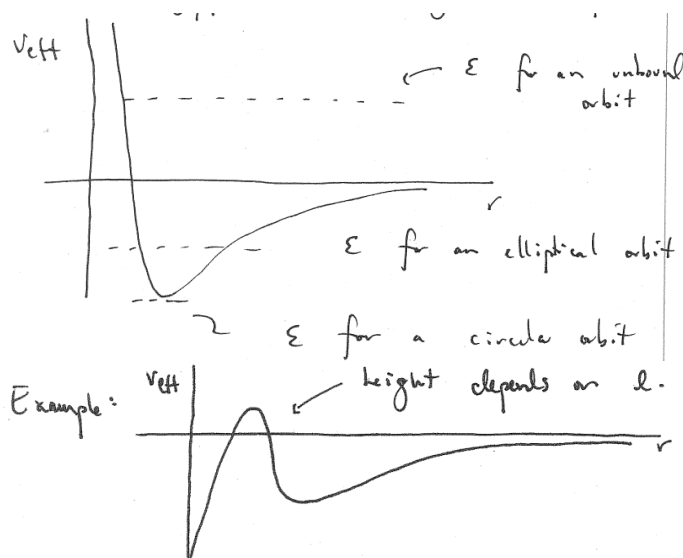 Veff
ε for an unbound
orbit
r
ε for an elliptical orbit
ε for a circular orbit
Example:
Veff
height depends on l.
r